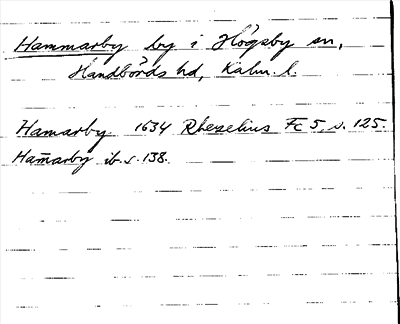 Hammarby by i Högsby sn,
Handbörds hd, Kalm. l.
Hamarby 1634 Rhezelius Fc 5, s. 125.
Ham̄arby ib. s. 138.